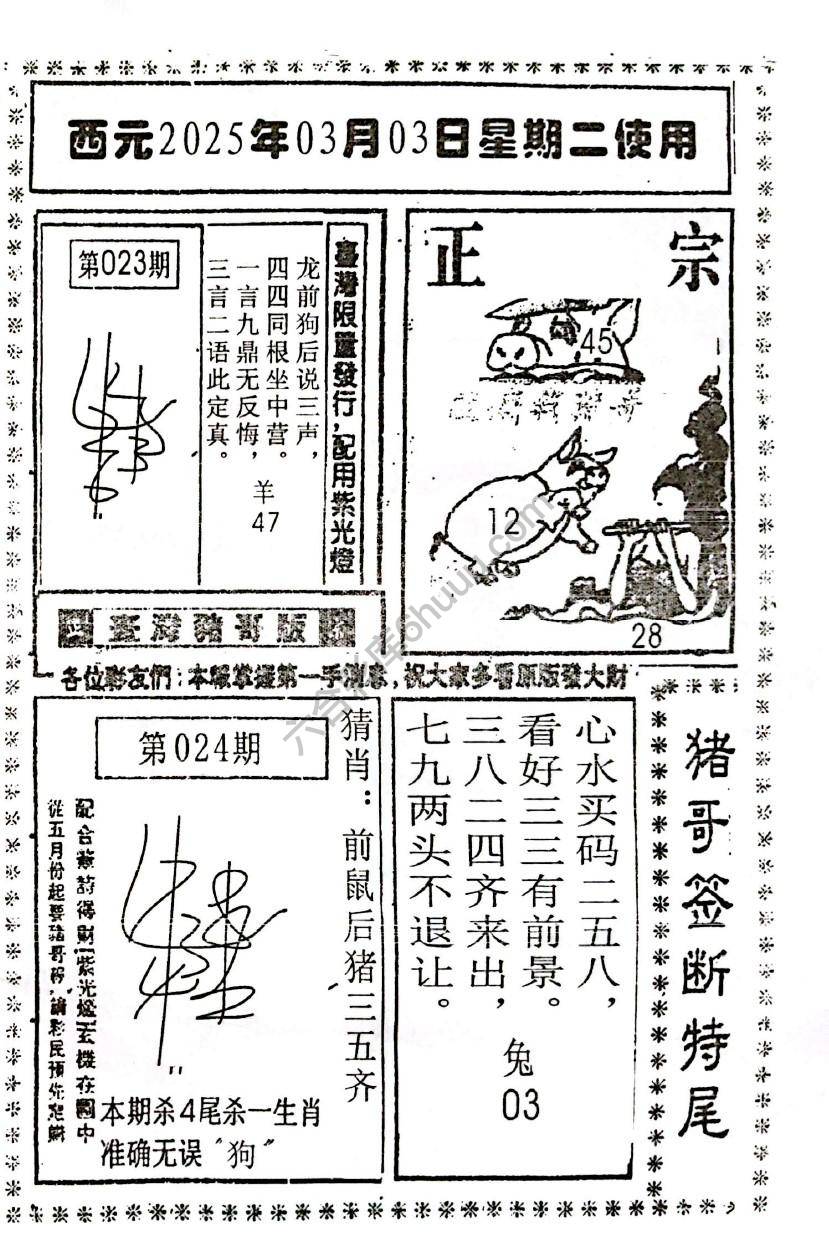 西元2025年03月03日星期二使用
第023期
臺灣限量發行，配用紫光燈
龙前狗后说三声，
四四同根坐中营。
一言九鼎无反悔，
三言二语此定真。
羊
47
正宗
45
12
28
臺灣豬哥版
各位彩友們：本報掌握第一手消息，祝大家多看原版發大財
第024期
猜肖：前鼠后猪三五齐
配合簽詩得財紫光燈玄機在圖中
從五月份起要豬哥
彩民預先定購
本期杀4尾杀一生肖
准确无误"狗"
心水买码二五八，
看好三三有前景。
三八二四齐来出，
七九两头不退让。
兔
03
猪哥签断特尾
六合图库6huuu.com